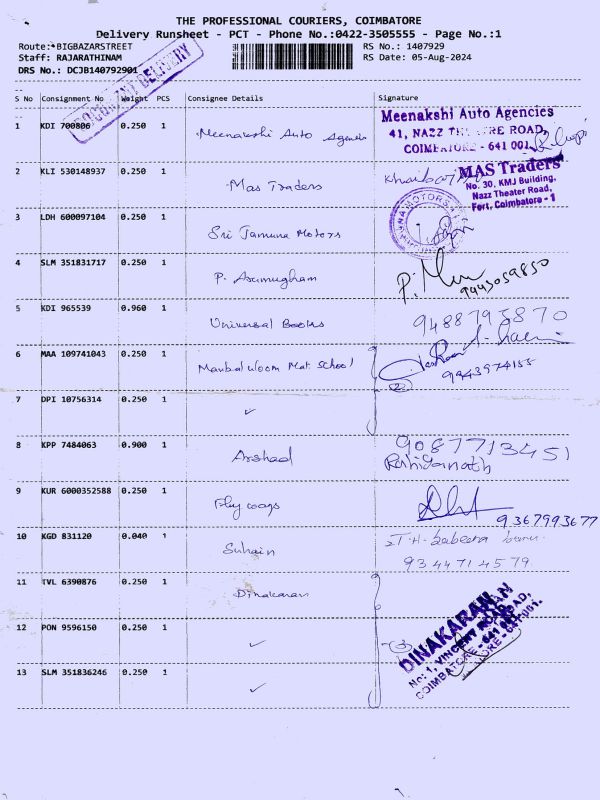 THE PROFESSIONAL COURIERS, COIMBATORE
Delivery Runsheet - PCT - Phone No.:0422-3505555 - Page No.:1
Route:*BIGBAZARSTREET
RS No.: 1407929
Staff: RAJARATHINAM
RS Date: 05-Aug-2024
DRS No.: DCJB140792901
DELIVERY
S No Consignment No Weight PCS Consignee Details Signature
1 KDI 700806 0.250 1 Meenakshi Auto Agencies
Meenakshi Auto Agencies
41, NAZZ THEATRE ROAD,
COIMBATORE - 641 001.
2 KLI 530148937 0.250 1 Mas Traders
MAS Traders
No. 30, KMJ Building,
Nazz Theater Road,
Fort, Coimbatore - 1
3 LDH 600097104 0.250 1 Sri Jamuna Motors
4 SLM 351831717 0.250 1 P. Arumugham
9443059850
5 KDI 965539 0.960 1 Universal Books 9488793870
6 MAA 109741043 0.250 1 Manbal Uloom Mat. School
9943974155
7 DPI 10756314 0.250 1 ✓
8 KPP 7484063 0.900 1 Arshad 9087713451
9 KUR 6000352588 0.250 1
9367993677
10 KGD 831120 0.040 1 Suhain
9344714579
11 TVL 6390876 0.250 1 Dinakaran
12 PON 9596150 0.250 1 ✓ (3)
DINAKARAN
No: 1, VINCENT ROAD,
COIMBATORE - 641 001.
13 SLM 351836246 0.250 1 ✓